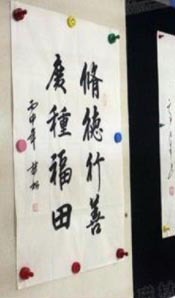 脩德行善
廣種福田
丙申年